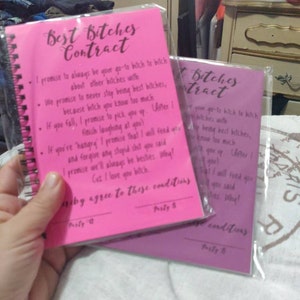 Best Bitches
Contract
• I promise to always be your go-to bitch to bitch
about other bitches with.
• We promise to never stop being best bitches,
because bitch you know too much.
• If you fall, I promise to pick you up. (After I
finish laughing at you!)
• If you're "hangry," I promise that I will feed you
and forgive any stupid shit you said
I promise we'll always be besties. Why?
Coz I love you bitch.
hereby agree to these conditions
Party "A"
Best Bitches
Contract
go-to bitch to bitch
bitches with.
best bitches,
too much.
you up. (After I
you!)
I will feed you
you said
Why?
conditions
Party "B"